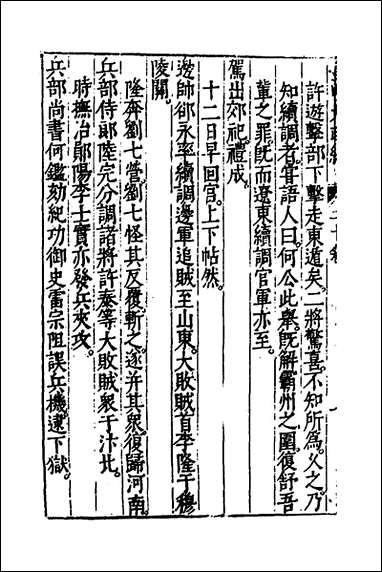 許遊擊部下擊走東道矣。二將驚喜。不知所為。久之。乃
知續調者。嘗語人曰。何公此舉。既解霸州之圍。復舒吾
輩之罪。既而遼東續調官軍亦至。
駕出郊祀禮成。
十二日早回宮。上下帖然。
邊帥郤永率續調邊軍追賊至山東。大敗賊首李隆于穆
陵關。
隆奔劉七營。劉七怪其反覆。斬之。遂并其衆。復歸河南。
兵部侍郎陸完分調諸將許泰等大敗賊衆于汴北。
時撫治鄖陽李士實亦發兵夾攻。
兵部尚書何鑑劾紀功御史雷宗阻誤兵機。逮下獄。